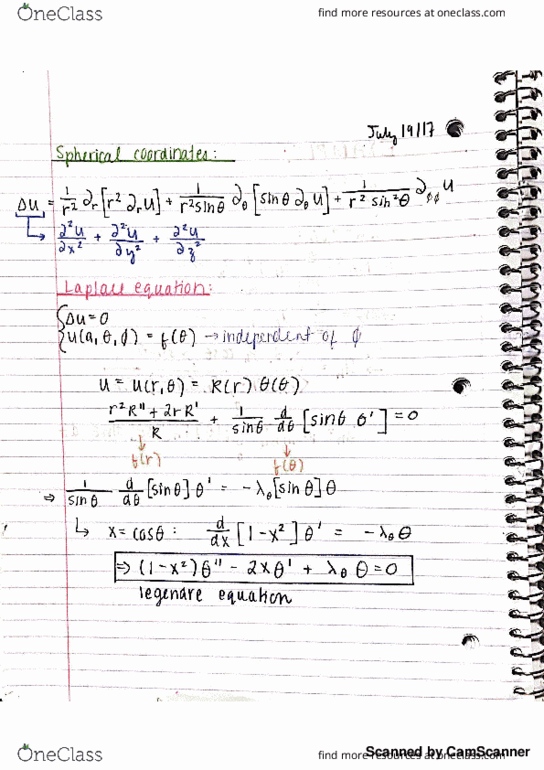 OneClass
find more resources at oneclass.com
July 19/17
Spherical coordinates:
Δu = 1/r² ∂r [r² ∂r u] + 1/(r² sinθ) ∂θ [sinθ ∂θ u] + 1/(r² sin²θ) ∂ϕϕ u
↳ ∂²u/∂x² + ∂²u/∂y² + ∂²u/∂z²
Laplace equation:
{ Δu = 0
u(a, θ, ϕ) = f(θ) → independent of ϕ
u = u(r, θ) = R(r) θ(θ)
(r² R'' + 2r R')/R + 1/sinθ d/dθ [sinθ θ'] = 0
↓ f(r) ↓ f(θ)
⇒ 1/sinθ d/dθ [sinθ] θ' = -λθ [sinθ] θ
↳ x = cosθ : d/dx [1-x²] θ' = -λθ θ
⇒ (1-x²) θ'' - 2xθ' + λθ θ = 0
legendre equation
OneClass
find more resources at oneclass.com
Scanned by CamScanner